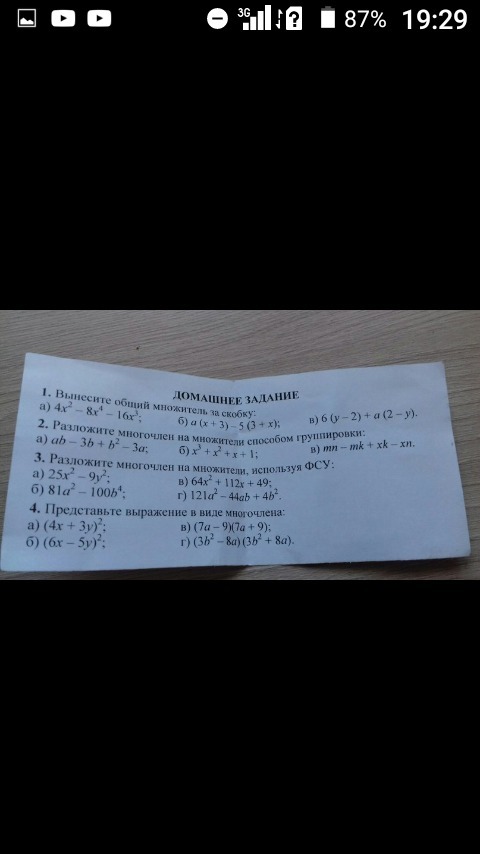 3G 87% 19:29
ДОМАШНЕЕ ЗАДАНИЕ
1. Вынесите общий множитель за скобку:
а) 4x² – 8x⁴ – 16x³; б) a (x + 3) – 5 (3 + x); в) 6 (y – 2) + a (2 – y).
2. Разложите многочлен на множители способом группировки:
а) ab – 3b + b² – 3a; б) x³ + x² + x + 1; в) mn – mk + xk – xn.
3. Разложите многочлен на множители, используя ФСУ:
а) 25x² – 9y²; в) 64x² + 112x + 49;
б) 81a² – 100b⁴; г) 121a² – 44ab + 4b².
4. Представьте выражение в виде многочлена:
а) (4x + 3y)²; в) (7a – 9)(7a + 9);
б) (6x – 5y)²; г) (3b² – 8a) (3b² + 8a).